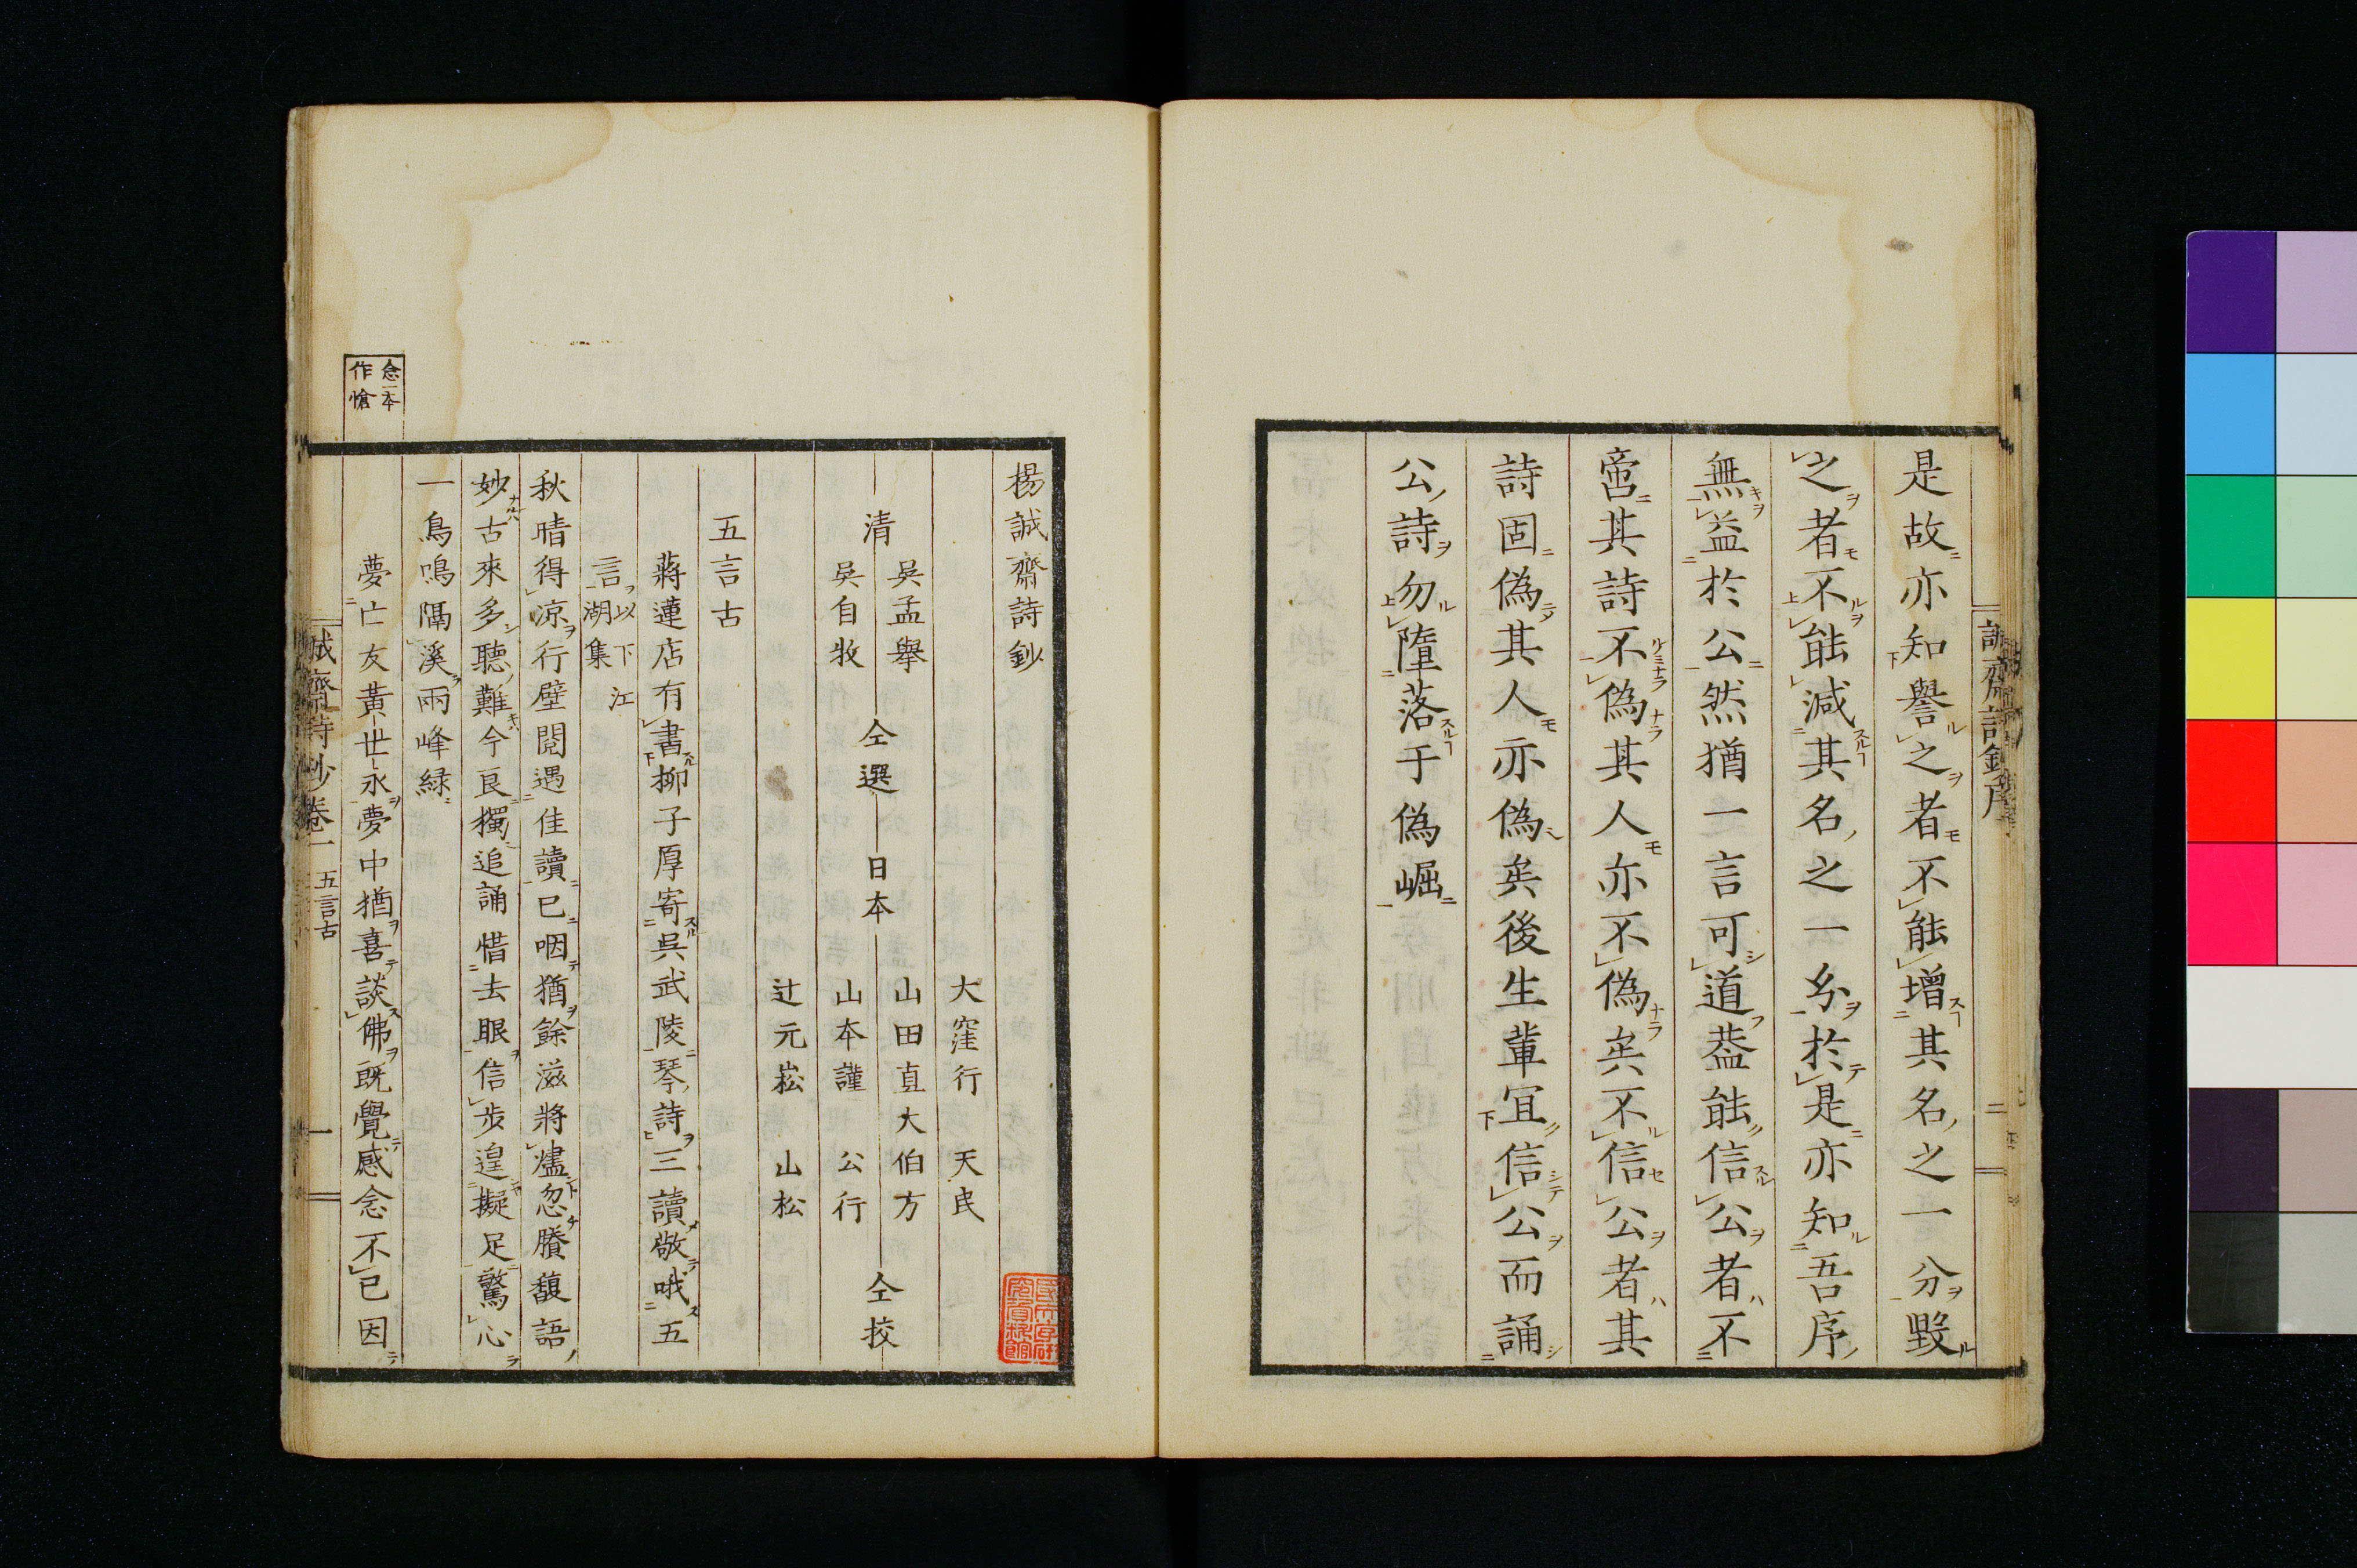 是故亦知譽之者不能增其名之一分毀
之者不能減其名之一分於是亦知吾序
無益於公然猶一言可道蓋能信公者不
啻其詩不偽其人亦不偽矣不信公者其
詩固偽其人亦偽矣後生輩宜信公而誦
公詩勿墮落于偽崛
楊誠齋詩鈔
大窪行 天民
清 吳孟舉 吳自牧 仝選 日本 山田直大伯方 山本謹 公行 仝挍
辻元崧 山松
五言古
蔣蓮店有書柳子厚寄吳武陵琴詩三讀敬哦五
言以下江湖集
秋晴得凉行壁閱遇佳讀已咽猶餘滋將燼忽賸馥語
妙古來多聽難今良獨追誦惜去眼信步遑擬足驚心
一鳥鳴隔溪兩峰緑
夢亡友黃世永夢中猶喜談佛既覺感念不已因
念一本作愴
誠齋詩鈔卷一 五言古 一